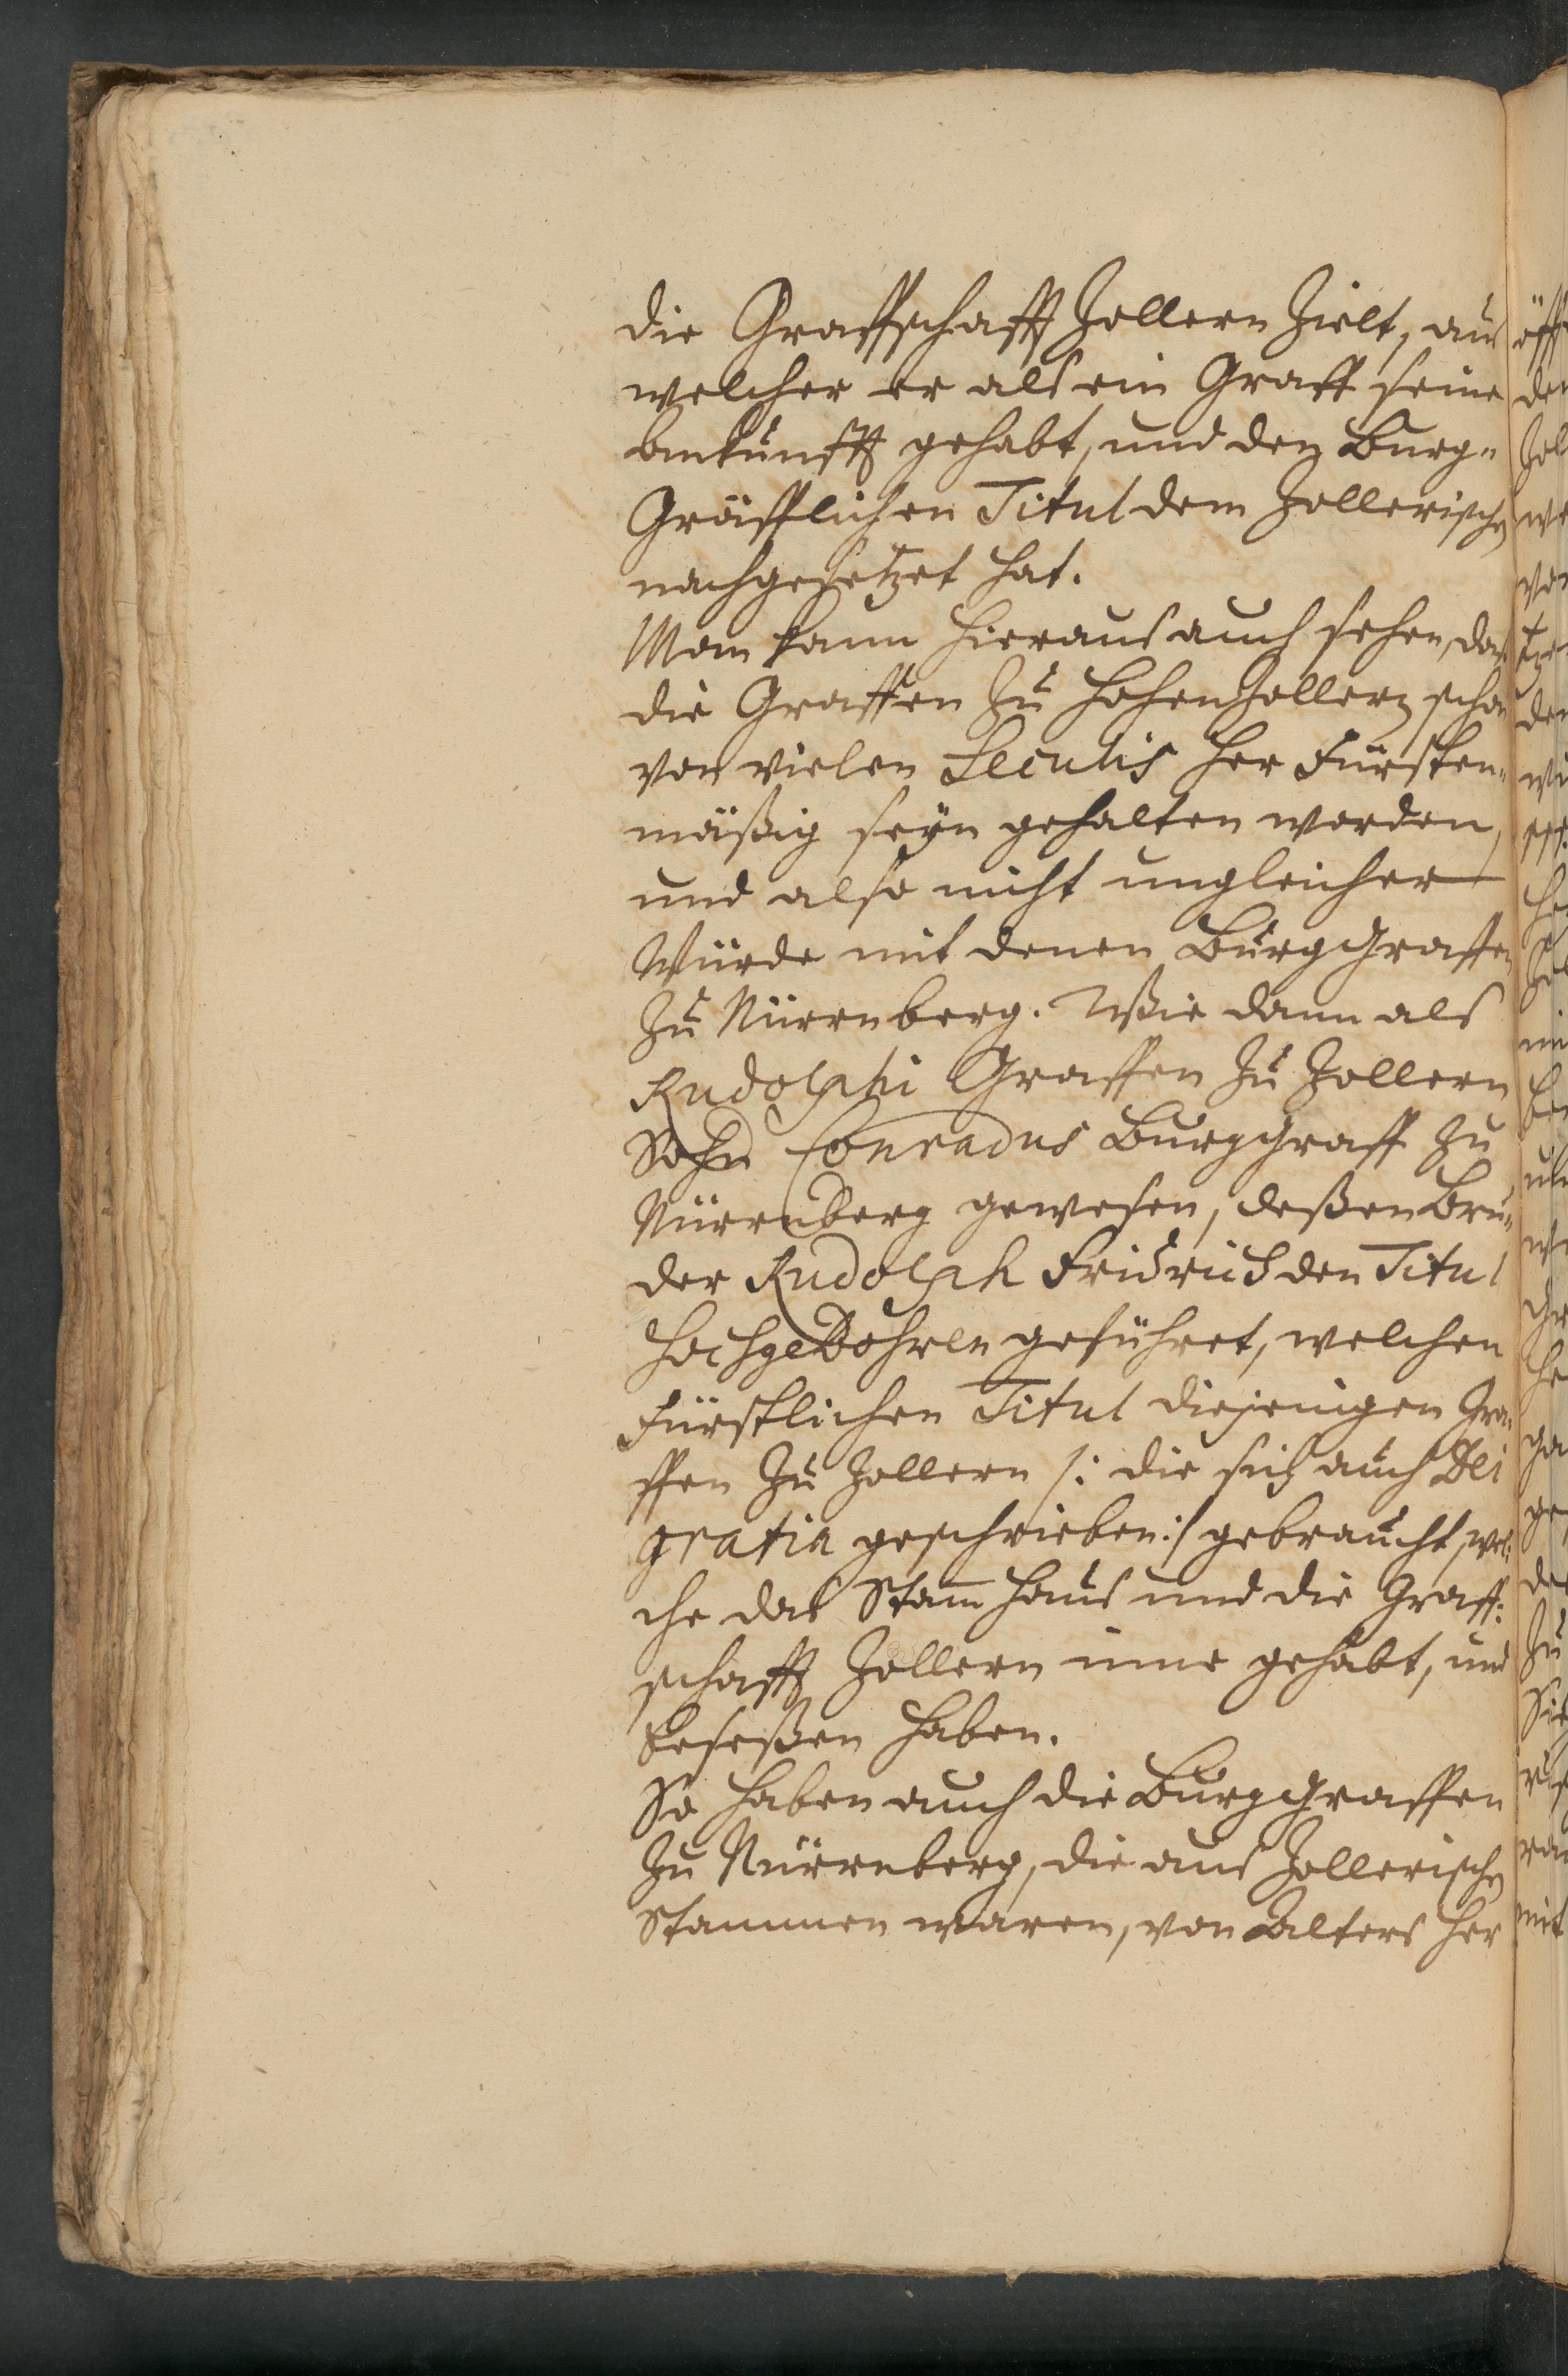 die Graffschafft Zollern Zielt, aus
welcher er als ein Graff seine
Ankunfft gehabt, und den Burg-
Gräfflichen Titul dem Zollerischen
nachgesetzet hat.
Man kann hieraus auch sehen, das
die Graffen Zu Hohenzollern schon
von vielen Seculis her Fürsten-
mäßig seÿn gehalten worden,
und also nicht ungleicher
Würde mit denen Burggraffen
Zu Nürrnberg. Wie dann als
Rudolphi Graffen Zu Zollern
Sohn Conradus Burggraff Zu
Nürrnberg gewesen, deßen Bru-
der Rudolph Fridrich den Titul
Hochgebohren geführet, welchen
Fürstlichen Titul diejenigen Gra-
ffen Zu Zollern /: die sich auch Dei
gratia geschrieben :/ gebraucht, wel-
che das Stam̄ Haus und die Graff-
schafft Zollern inne gehabt, und
beseßen haben.
So haben auch die Burggraffen
Zu Nürrnberg, die aus Zollerischen
Stammen waren, von Alters her